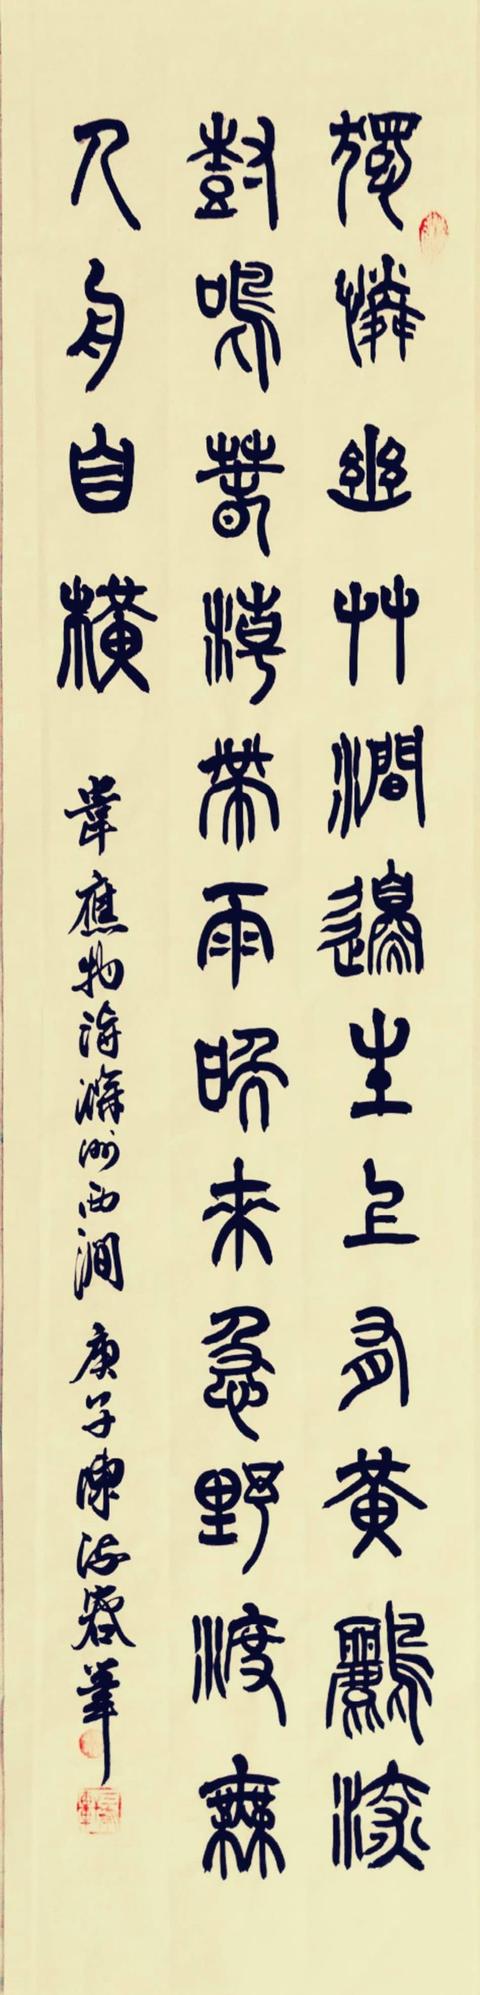 獨憐幽艸澗邊生上有黃鸝深
樹鳴春潮帶雨晚來急野渡無
人舟自橫 韋應物詩滁州西澗 庚子陳筆